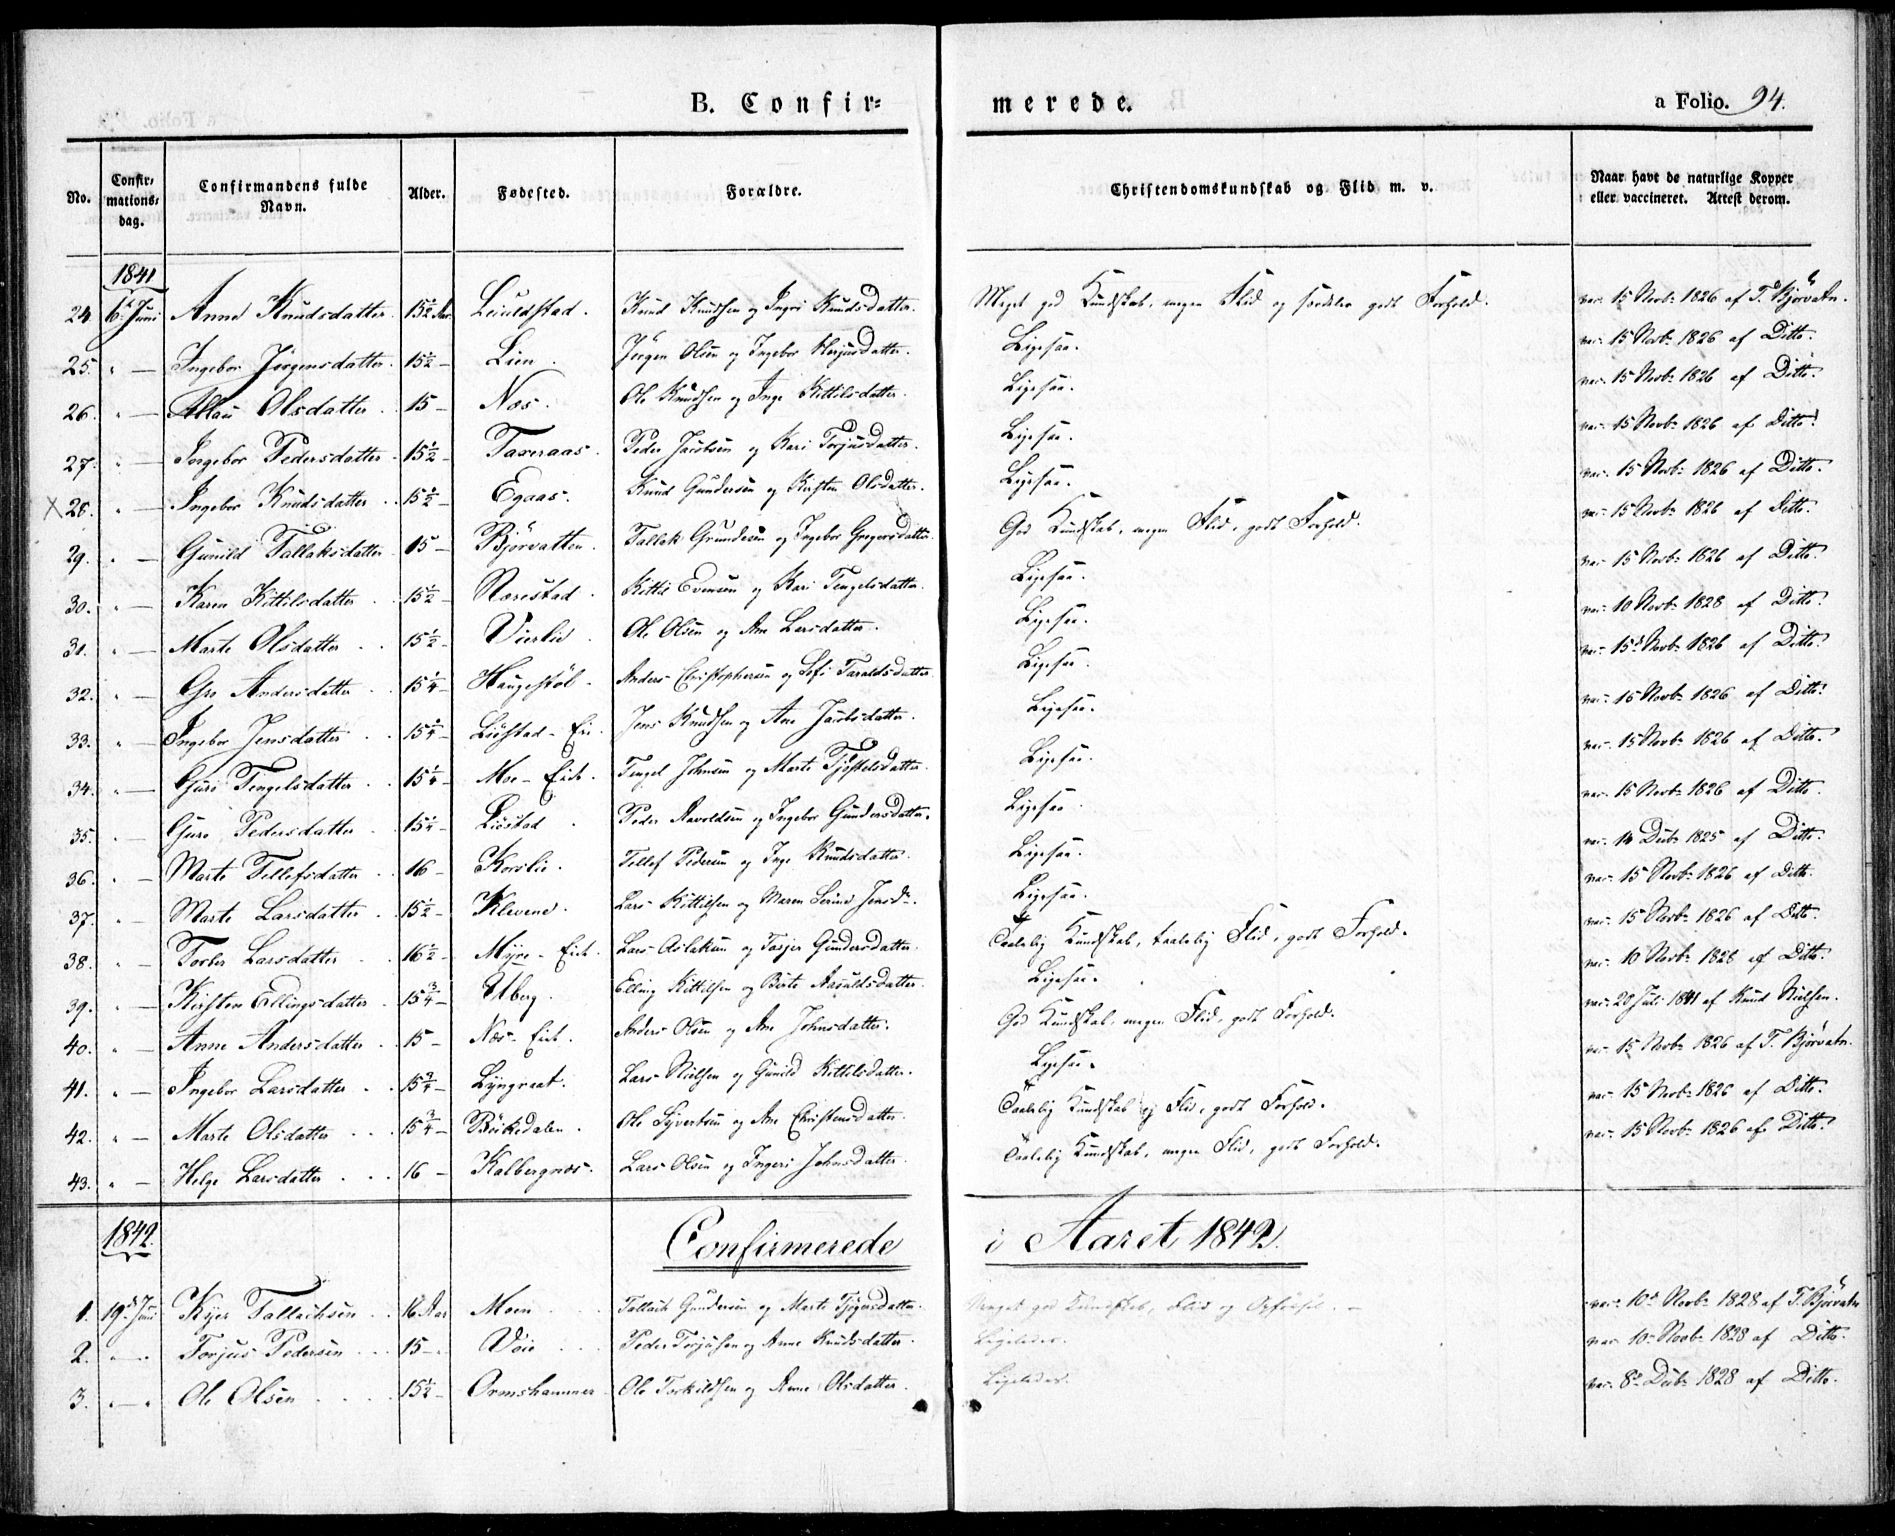 B. Confir=
merede.
a Folio. 94.
No. Confir=mations=dag. Confirmandens fulde Navn. Alder. Fødested. Forældre. Christendomskundskab og Flid m. v. Naar havt de naturlige Kopper eller vaccineret. Attest derom.
1841
24. 6te Juni Anne Knudsdatter. 15½ Aar. Knud Knudsen og Ingri Knudsdatter. Meget god Kundskab, megen Flid og særdeles godt Forhold. vac. 15 Novbr 1826 af T. Bjørvatn.
25. " — Ingebor Jörgensdatter. 15½ — Lien. Jörgen Olsen og Ingebor Herjusdatter. Ligesaa. vac. 15 Novbr 1826 af Ditto.
26. " — Olsdatter. 15 — Næs. Ole Knudsen og Inge Kittilsdatter. Ligesaa. vac. 15 Novbr 1826 af Ditto.
27. " — Ingebor Pedersdatter 15½ — Taxeraas. Peder Jacobsen og Kari Torjusdatter. Ligesaa. vac. 15 Novbr 1826 af Ditto.
X 28. " — Ingebor Knudsdatter 15½ — Egaas. Knud Gundersen og Kirsten Olsdatter. Ligesaa. vac. 15 Novbr 1826 af Ditto.
29. " — Gunild Tallaksdatter 15 — Björvatten. Tallak Gundersen og Ingebor Gregersdatter. God Kundskab, megen Flid, godt Forhold. vac. 15 Novbr 1826 af Ditto.
30. " — Karen Kittilsdatter 15½ — Rorestad. Kittil Evensen og Kari Tengelsdatter. Ligesaa. vac. 15 Novbr 1826 af Ditto.
31. " — Marte Olsdatter 15½ — Vierlie. Ole Olsen og Ane Larsdatter. Ligesaa. vac. 10 Novbr 1828 af Ditto.
32. " — Gro Andersdatter 15¼ — Haugestöl. Anders Christophersen og Sofi Taraldsdatter. Ligesaa. vac. 15d Novbr 1826 af Ditto.
33. " — Ingebor Jensdatter 15¼ — Jens Knudsen og Ane Jacobsdatter. Ligesaa. vac. 15 Novbr 1826 af Ditto.
34. " — Guri Tengelsdatter 15¼ — Moe - Eide. Tengel Johnsen og Marte Tjöstelsdatter. Ligesaa. vac. 15 Novbr 1826 af Ditto.
35. " — Guro Pedersdatter 15¼ — Liöstad. Peder Aavoldsen og Ingebor Gundersdatter. Ligesaa. vac. 15 Novbr 1826 af Ditto.
36. " — Marte Tellefsdatter 16 — Korslie. Tellef Pedersen og Inge Knudsdatter. Ligesaa. vac. 14 Decbr 1825 af Ditto.
37. " — Marte Larsdatter 15½ — Klevene. Lars Kittilsen og Maren Serine Jensd. Ligesaa. vac. 15 Novbr 1826 af Ditto.
38. " — Torber Larsdatter 16½ — Myre - Eide. Lars Aslaksen og Tasjer Gundersdatter. Taalelig Kundskab, taalelig Flid, godt Forhold. vac. 15 Novbr 1826 af Ditto.
39. " — Kirsten Ellingsdatter 15¾ — Uberg. Elling Kittilsen og Birte Aasuldsdatter. Ligesaa. vac. 10 Novbr 1828 af Ditto.
40. " — Anne Andersdatter 15 — Næs - Eide. Anders Olsen og Ane Johnsdatter. God Kundskab, megen Flid, godt Forhold. vac. 20 Juli 1841 af Knud Nielsen.
41. " — Ingebor Larsdatter 15¾ — Lyngraat. Lars Nielsen og Gunild Kittilsdatter. Ligesaa. vac. 15 Novbr 1826 af T. Björvatn.
42. " — Marte Olsdatter 15¾ — Böikedalen. Ole Syvertsen og Ane Christensdatter. Taalelig Kundskab og Flid, godt Forhold. vac. 15 Novbr 1826 af Ditto.
43. " — Helge Larsdatter 16 — Kalbergnæs. Lars Olsen og Ingeri Johnsdatter. Taalelig Kundskab, megen Flid, godt Forhold. vac. 15 Novbr 1826 af Ditto.
1842. Confirmerede i Aaret 1842.
1. 19d Juni Tallachsen 16 Aar Moen Tallack Gundersen og Marte Tjögersdatter. Meget god Kundskab, Flid og Opførsel. vac. 10d Novbr 1828 af T. Björvatn
2. " — " Torjus Pedersen 15 — Vöie Peder Torjusen og Anne Knudsdatter. Ligeledes. vac. 10 Novbr 1828 af Ditto.
3. " — " Ole Olsen 15½ — Ormshammer Ole Torkildsen og Anne Olsdatter. Ligeledes. vac. 8d Decbr 1828 af Ditto.